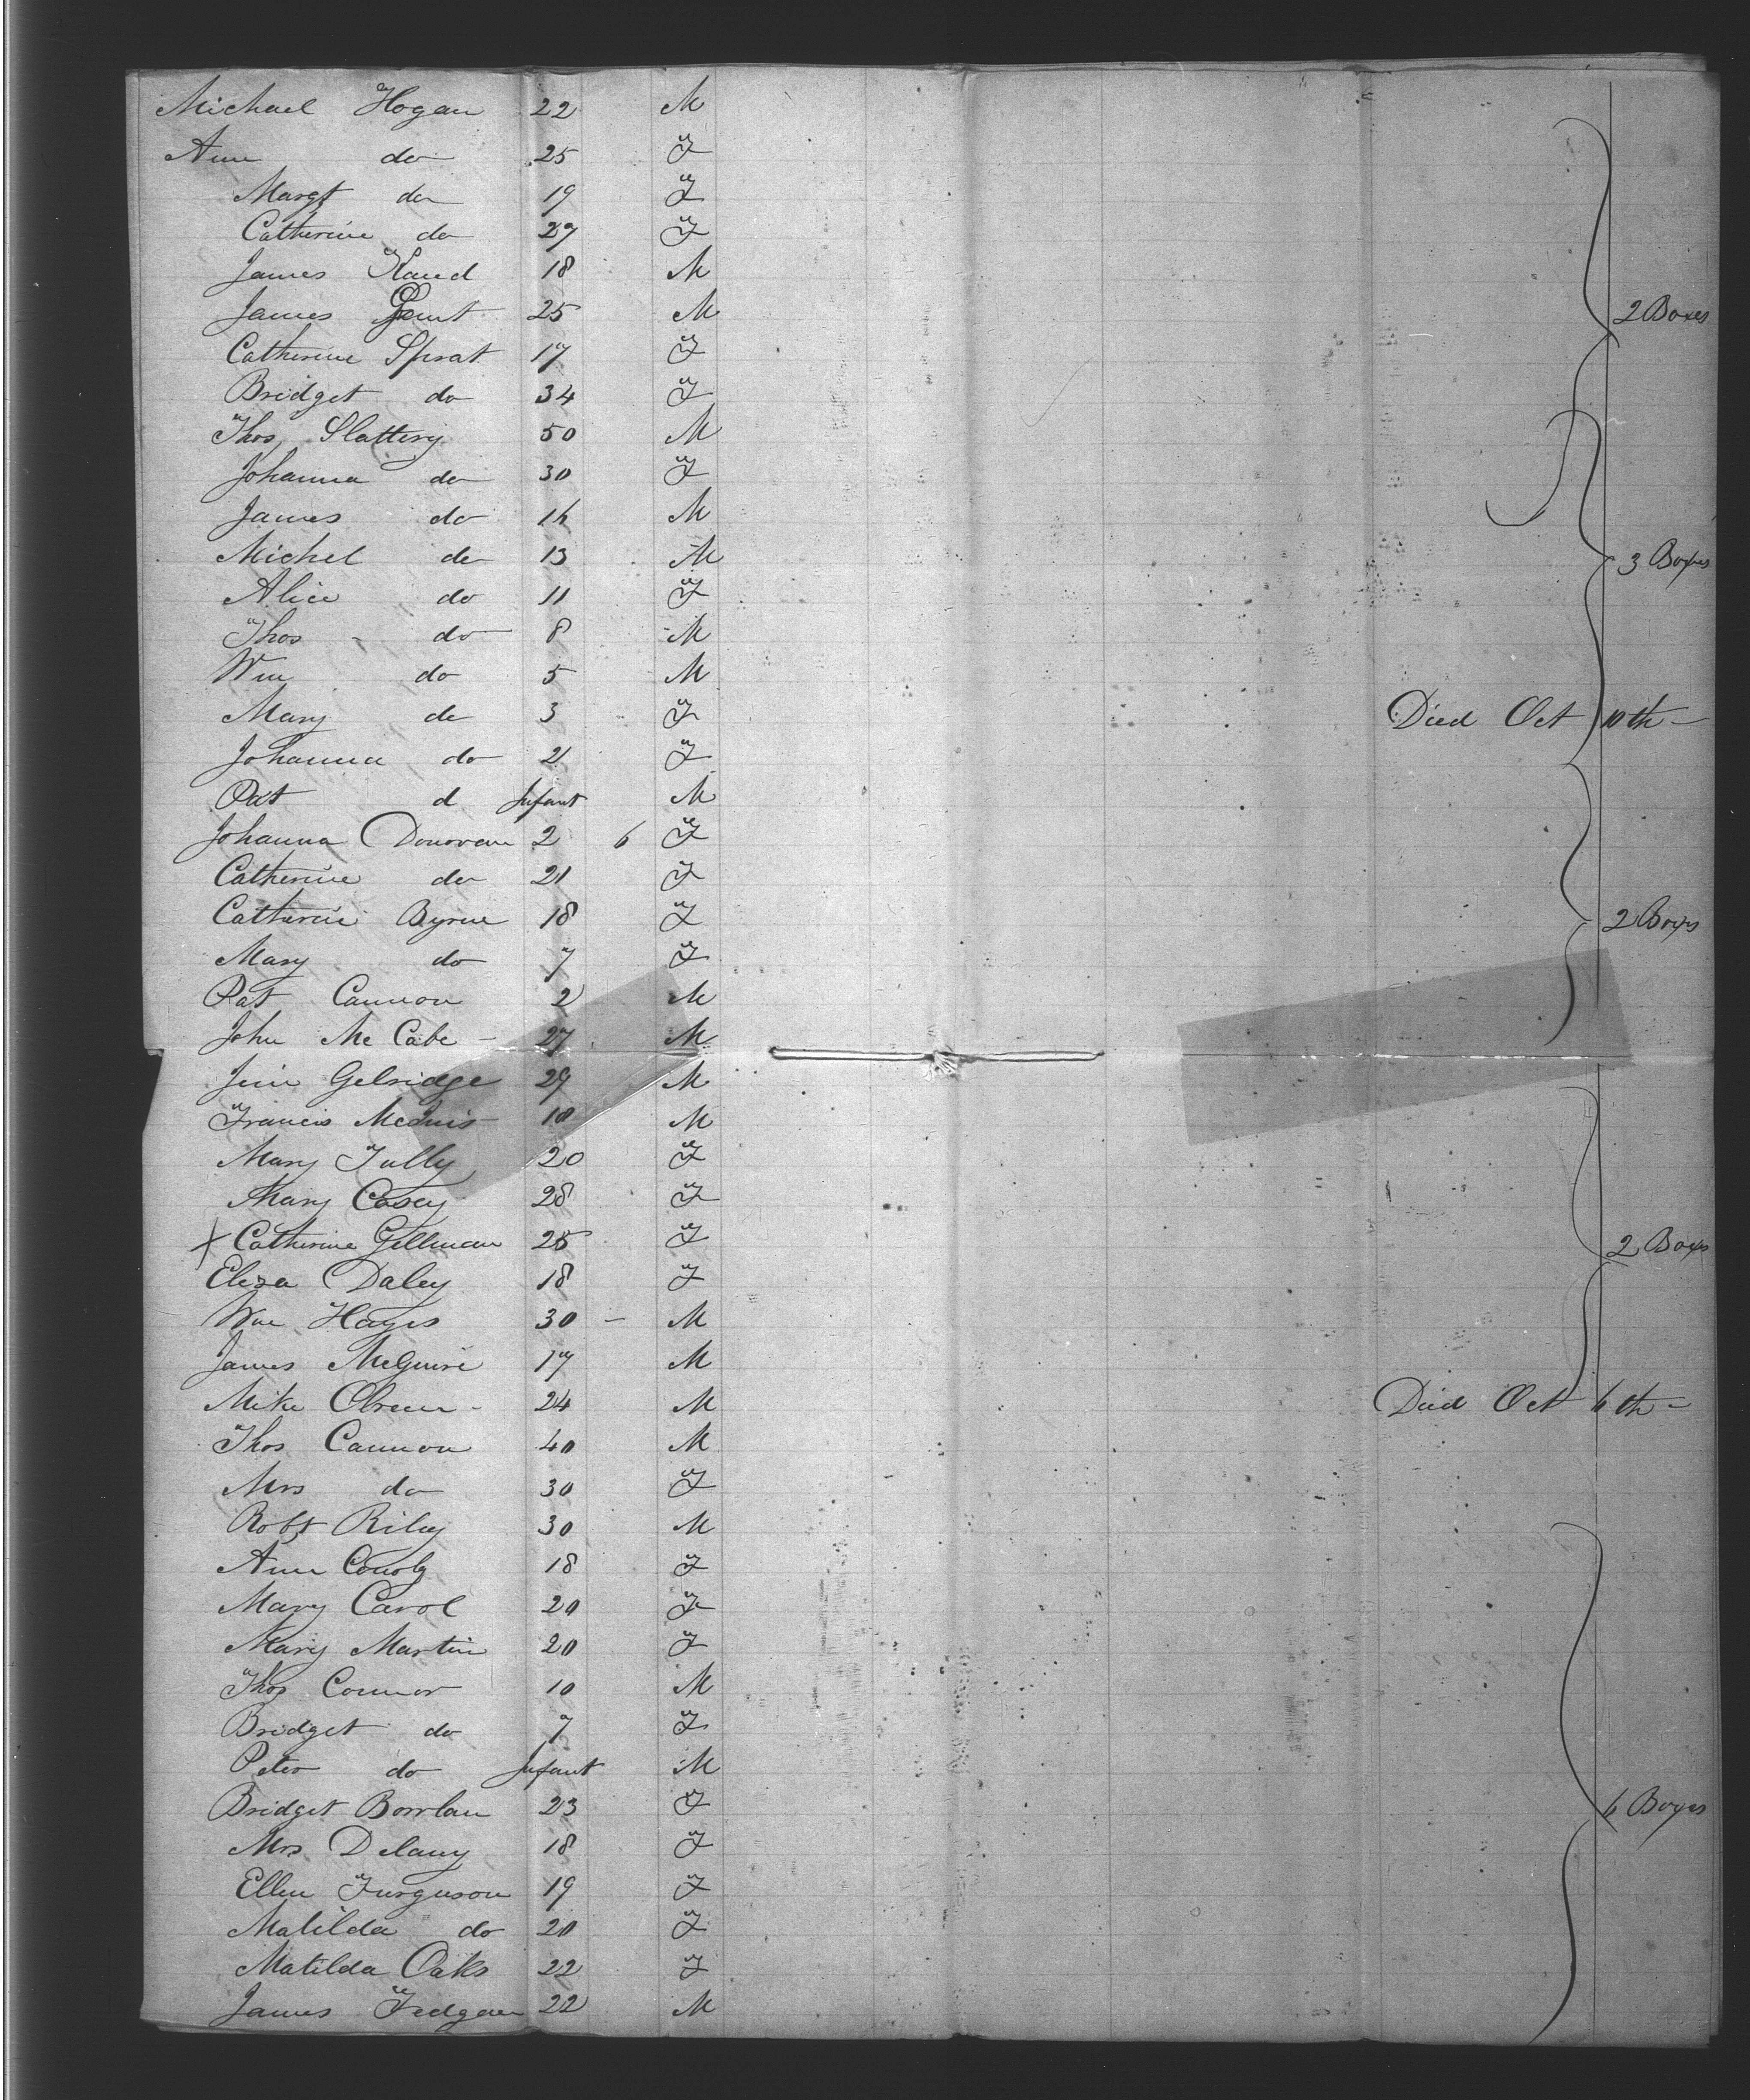 Michael Hogan 22 M
Ann do 25 F
Margt do 19 F
Catherine do 27 F
James Hand 18 M
James 25 M 2 Boxes
Catherine Sprat 17 F
Bridget do 34 F
Thos Slattery 50 M
Johanna do 30 F
James do 16 M
Michel do 13 M 3 Boxes
Alice do 11 F
Thos do 8 M
Wm do 5 M
Mary do 3 F Died Oct 10th
Johanna do 2 F
Pat d Infant M
Johanna Donovan 2 6 F
Catherine do 21 F
Catherin Byrne 18 F 2 Boxes
Mary do 7 F
Pat Cannon 2 M
John McCabe 27 M
Jim Gelridge 29 M
Francis 18 M
Mary Tully 20 F
Mary Casey 28 F
X Catherine Gillman 25 F 2 Boxes
Eliza Daley 18 F
Wm Hayes 30 M
James McGuire 17 M
Mike Obreen 24 M Died Oct 6th
Thos Cannon 40 M
Mrs do 30 F
Robt Riley 30 M
Ann Conoly 18 F
Mary Carol 20 F
Mary Martin 20 F
Thos Connor 10 M
Bridget do 7 F
Peter do Infant M
Bridget 23 F 6 Boxes
Mrs Delany 18 F
Ellen Furguson 19 F
Matilda do 20 F
Matilda Oaks 22 F
James 22 M